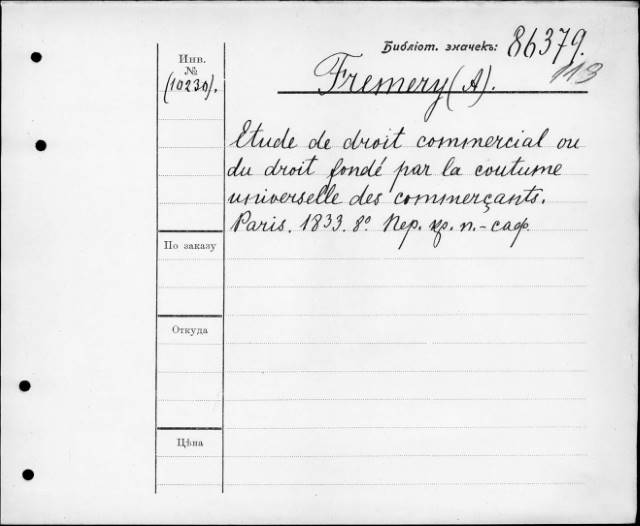 Библіот. значекъ: 86379.
113
Инв.
№
(10230).
Fremery (A).
Etude de droit commercial ou
du droit fondé par la coutume
universelle des commerçants.
Paris. 1833. 8º. Пер. кр. п.-саф.
По заказу
Откуда
Цѣна